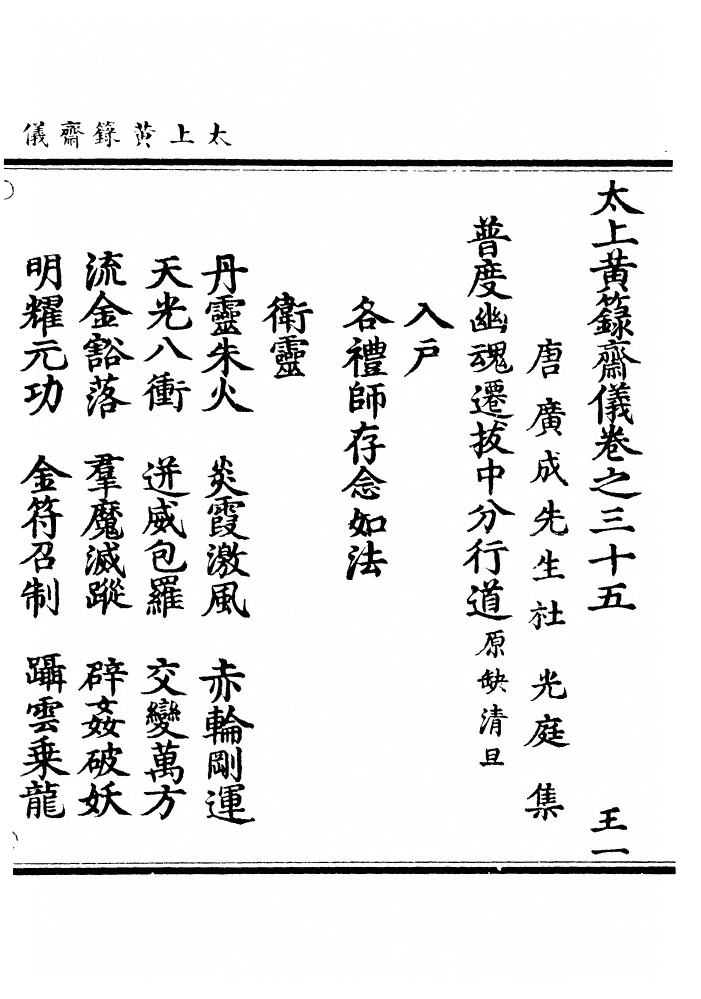 太上黃籙齋儀
太上黃籙齋儀卷之三十五 王一
唐廣成先生社光庭集
普度幽魂遷拔中分行道原缺清旦
入戶
各禮師存念如法
衛靈
丹靈朱火 炎霞激風 赤輪剛運
天光八衝 迸威包羅 交變萬方
流金豁落 羣魔滅蹤 辟姦破妖
明耀元功 金符召制 躡雲乗龍